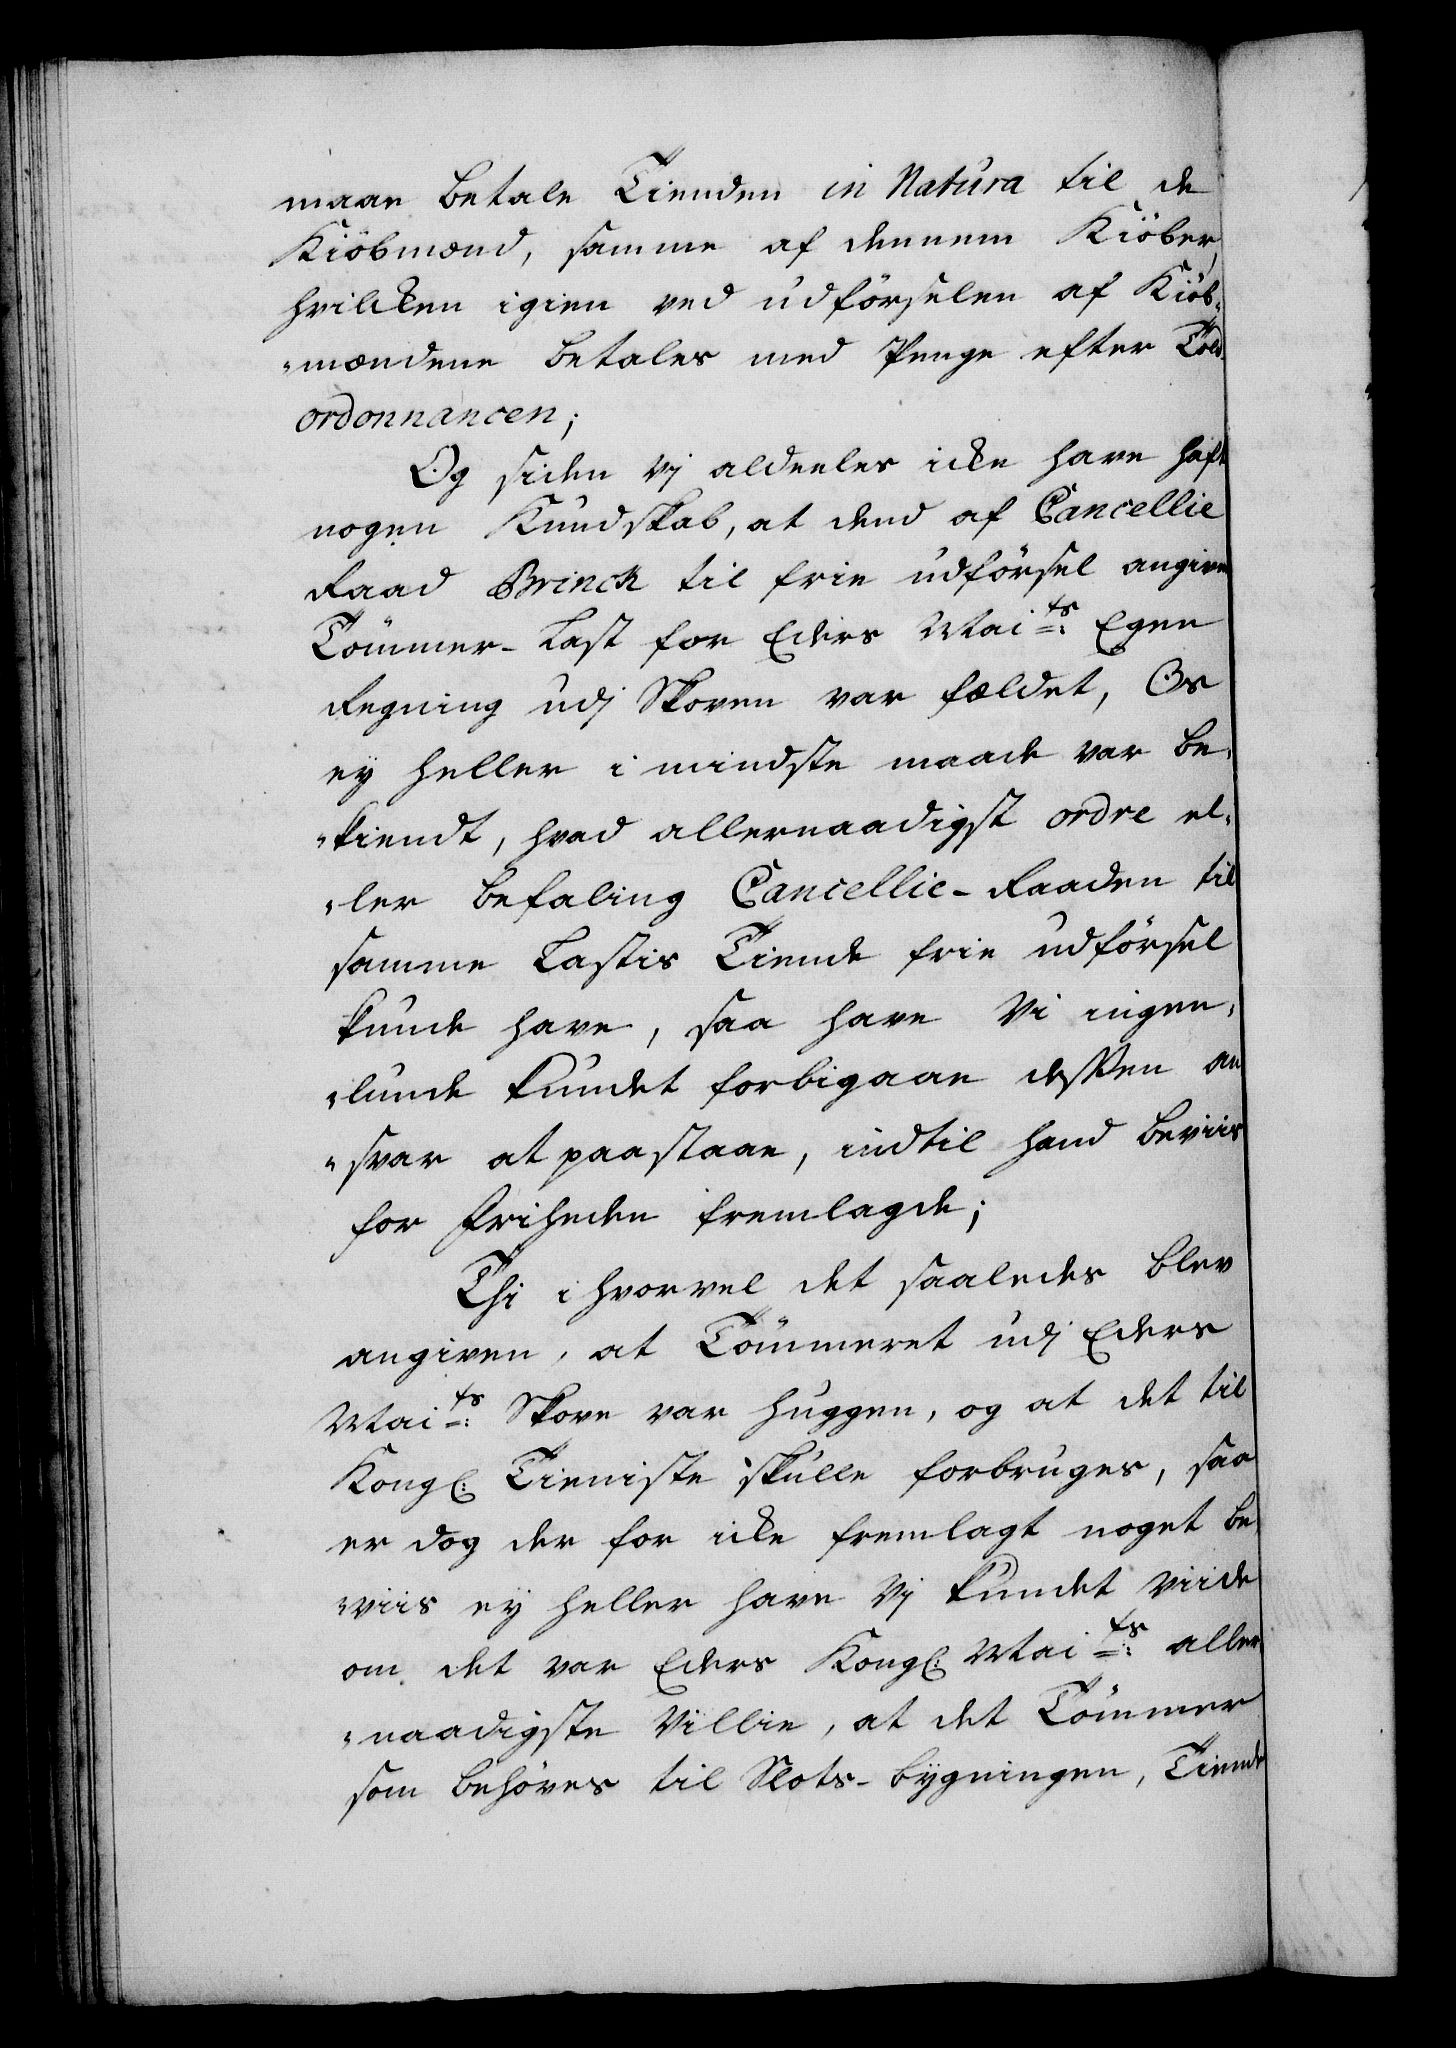 maae betale Tienden in Natura til de
Kiöbmænd, samme af dennem Kiöber,
hvilcken igien ved udförselen af Kiöb-
„mændene betales med Penge efter Told
ordonnancen;
Og siden Vj aldeeles icke have haft
nogen Kundskab, at dend af Cancellie
Raad Brinck til frie udförsel angivne
Tömmer-Last for Eders Mai<sup>ts</sup>: Egen
Regning udj Skoven var fældet, Os
ey heller i mindste maade var be-
„kiendt, hvad allernaadigst ordre el-
„ler befaling Cancellie-Raaden til
samme Lastis Tiende frie udförsel
kunde have, saa have Vi ingen-
„lunde kundet forbigaae dessen an
„svar at paastaae, indtil hand beviis
for Friheden fremlagde;
Thi i hvorvel det saaledes blev
angiven, at Tömmeret udj Eders
Mai<sup>ts</sup>: Skove var huggen, og at det til
Kongl: Tieniste skulle forbruges, saa
er dog der for icke fremlagt noget be
„viis ey heller have Vj kundet viide
om det var Eders Kongl: Mai<sup>ts</sup>: aller
„naadigste Villie, at det Tömmer
som behöves til Slots-bygningen, Tiende